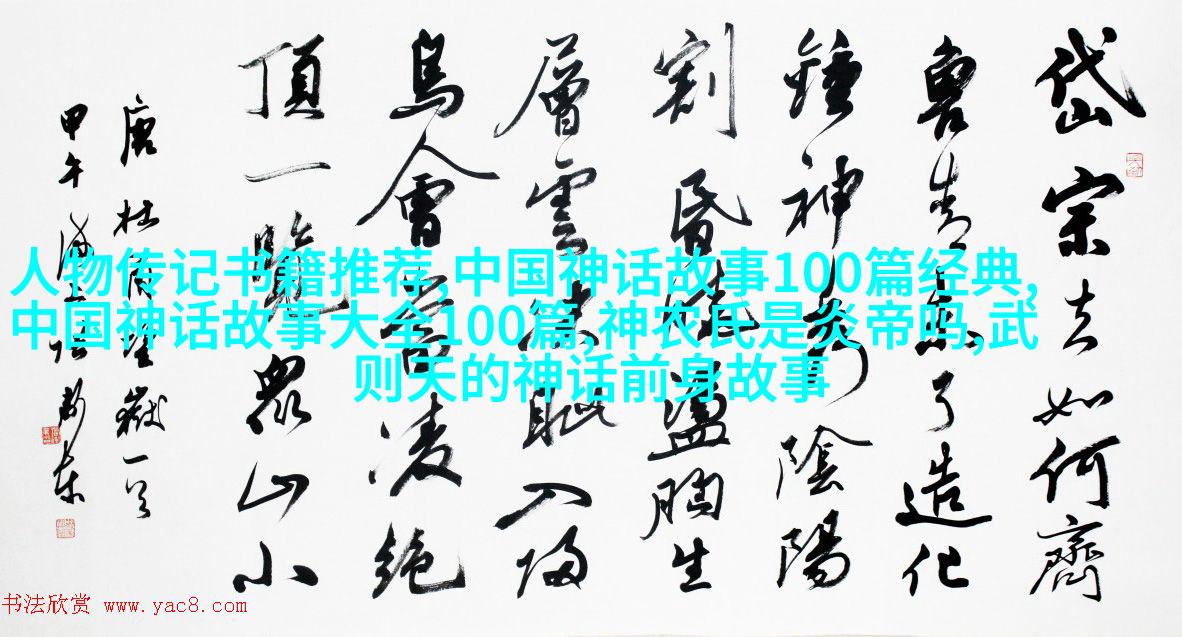 岱宗夫如何齊
魯青未了造化
鍾神秀陰陽
割昏曉盪胸生
層雲決眦入歸
鳥會當凌絕
頂一覽衆山小
唐杜甫望嶽一首
甲午
人物传记书籍推荐,中国神话故事100篇经典,
中国神话故事大全100篇,神农氏是炎帝吗,武
则天的神话前身故事
书法欣赏 www.yac8.com